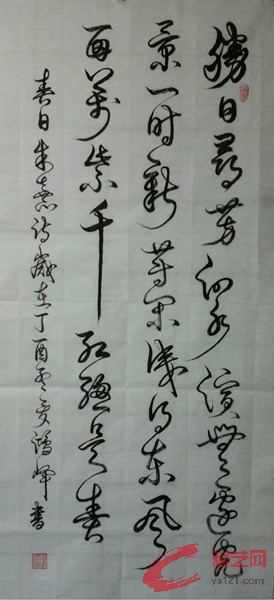 勝日尋芳泗水濱無邊光
景一时新等闲識得东風
面萬紫千红總是春
春日朱熹诗歲在丁酉冬書
艺网
ys121.com